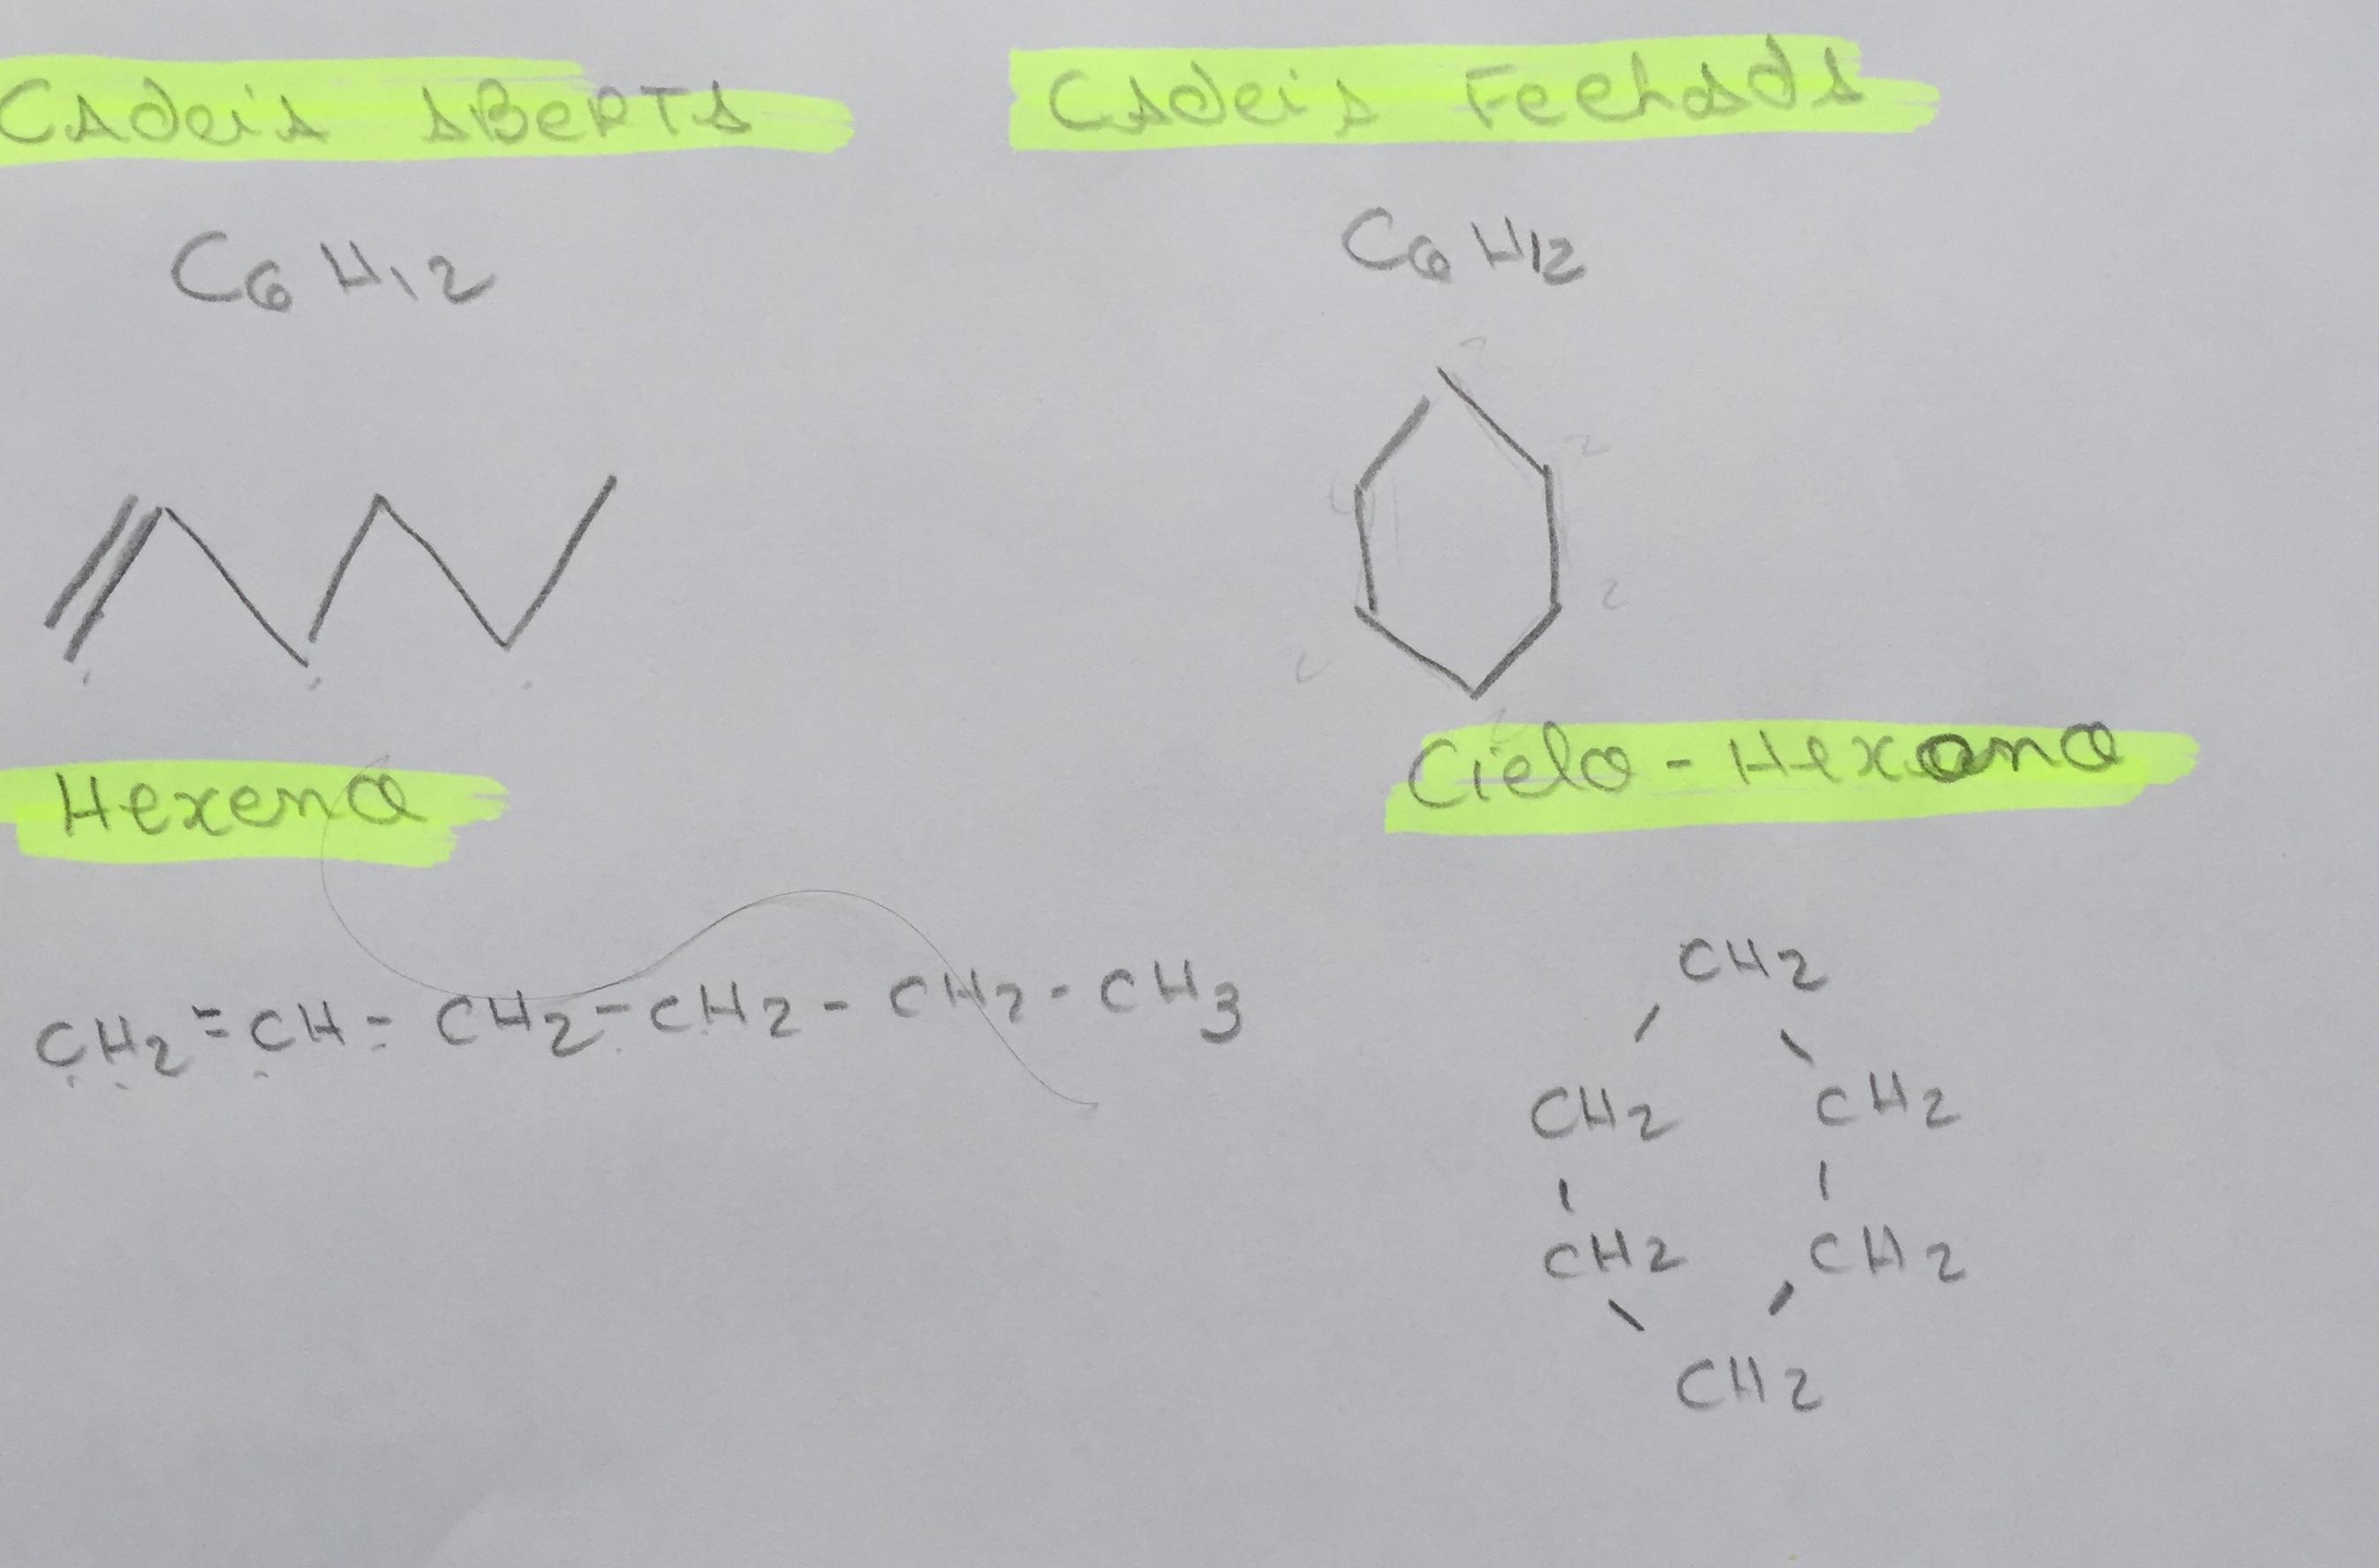 Cadeia aberta
Cadeia Fechada
C6 H12
C6 H12
Hexeno
Ciclo - Hexano
CH2 = CH - CH2 - CH2 - CH2 - CH3
CH2
CH2 CH2
CH2 CH2
CH2